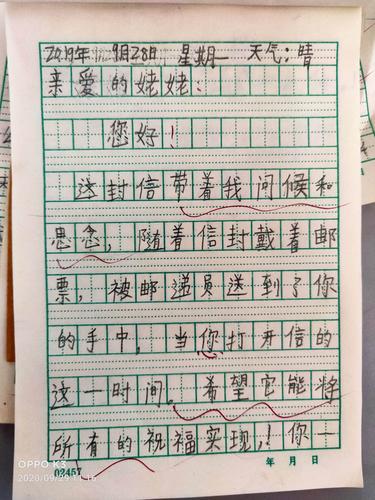 2019年9月28日 星期一 天气：晴
亲爱的姥姥：
您好！
这封信带着我问候和
思念，随着信封戴着邮
票，被邮递员送到了你
的手中，当你打开信的
这一时间。希望它能将
所有的祝福实现,！你一
02457 年 月 日
OPPO K3
2020/09/29 11:16